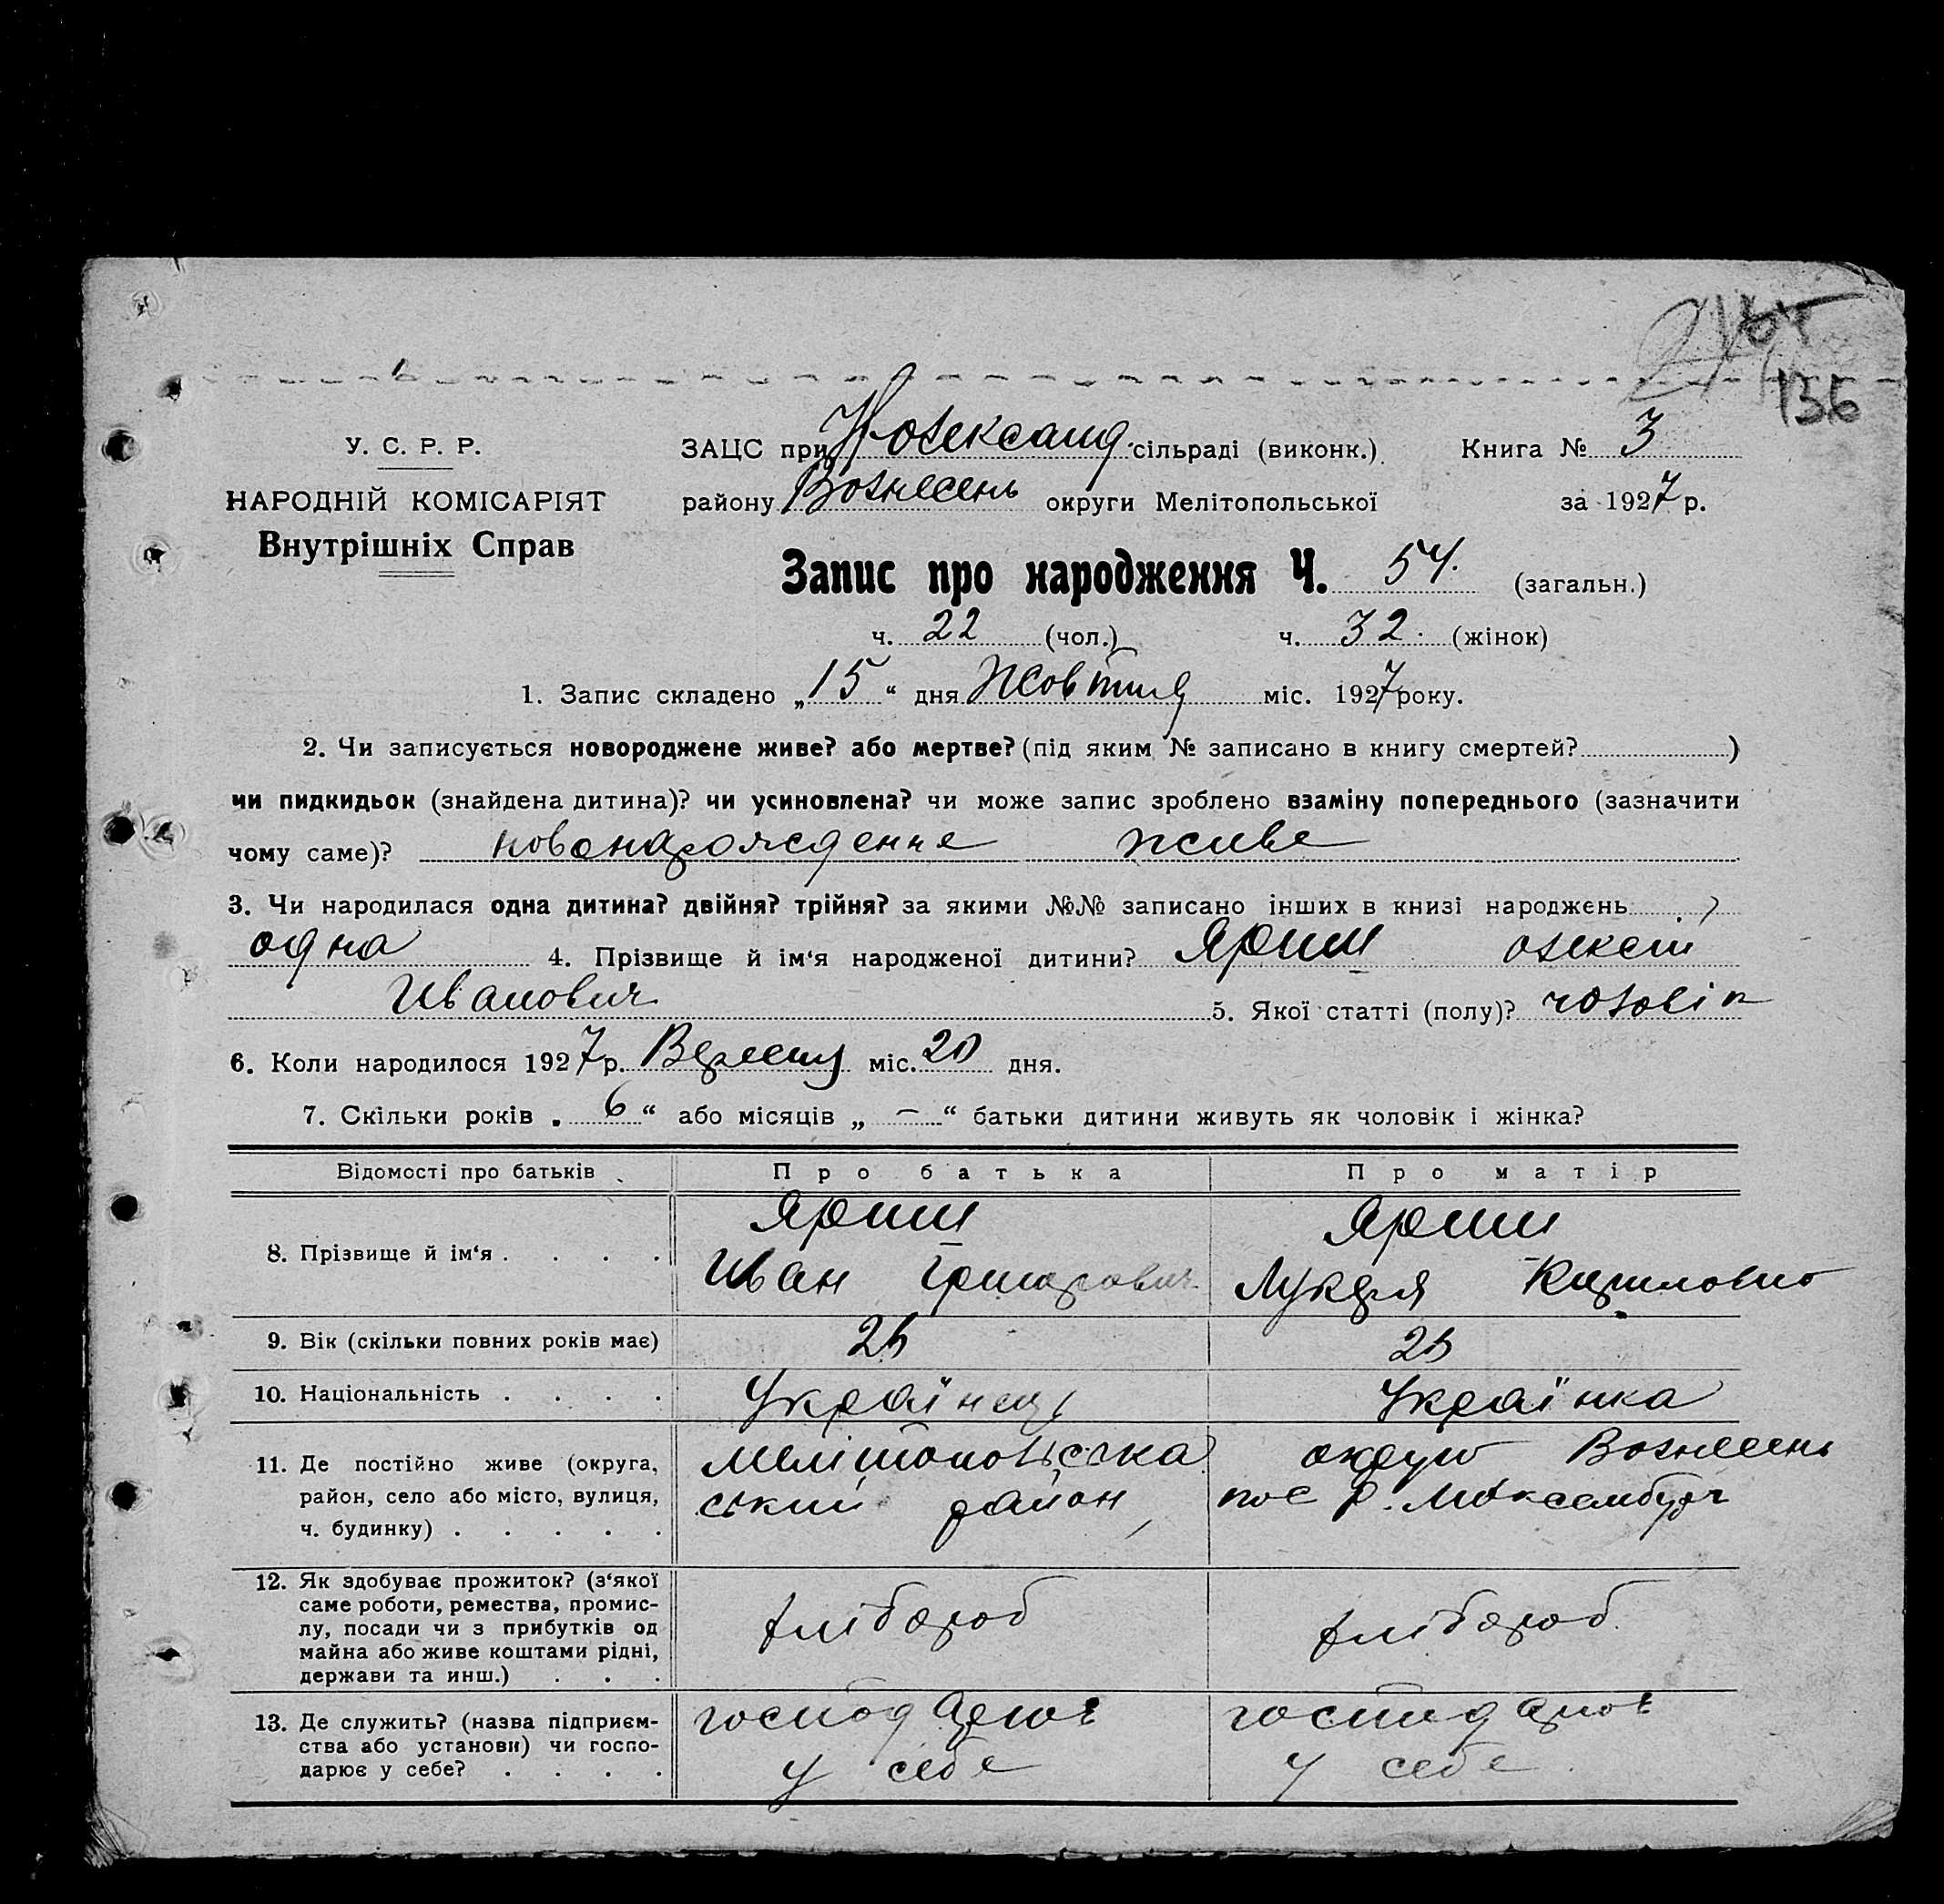 136
У. С. Р. Р.
НАРОДНІЙ КОМІСАРІЯТ
Внутрішніх Справ
ЗАЦС при Н Олександ. сільраді (виконк.). Книга № 3
району Вознесень округи Мелітопольської за 1927 р.
Запис про народження Ч. 54. (загальн.)
ч. 22 (чол.) ч. 32. (жінок)
1. Запис складено „ 15 “ дня Жовтня міс. 1927 року.
2. Чи записується новороджене живе? або мертве? (під яким № записано в книгу смертей? )
чи пидкидьок (знайдена дитина)? чи усиновлена? чи може запис зроблено взаміну попереднього (зазначити
чому саме)? новонарождение живе
3. Чи народилася одна дитина? двійня? трійня? за якими №№ записано інших в книзі народжень )
одна 4. Прізвище й ім‘я народженої дитини? Яриш Олексій
Иванович 5. Якої статті (полу)? чоловік
6. Коли народилося 1927 р. Вересня міс. 20 дня.
7. Скільки років „ 6 “ або місяців „ — “ батьки дитини живуть як чоловік і жінка?
Відомості про батьків Про батька Про матір
8. Прізвище й ім‘я . . . . Яриш Яриш
Иван Григорович Лукеря Кириловно
9. Вік (скільки повних років має) 25 25
10. Національність . . . . Українець Українка
11. Де постійно живе (округа, Мелітопольська округ Вознесень
район, село або місто, вулиця, ський район, пос Р.
ч. будинку) . . . . .
12. Як здобуває прожиток? (з‘якої
саме роботи, ремества, промис-
лу, посади чи з прибутків од хлібороб хлібороб
майна або живе коштами рідні,
держави та инш.) . . .
13. Де служить? (назва підприєм- господарює господарює
ства або установи) чи госпо- у себе у себе
дарює у себе? . . . .